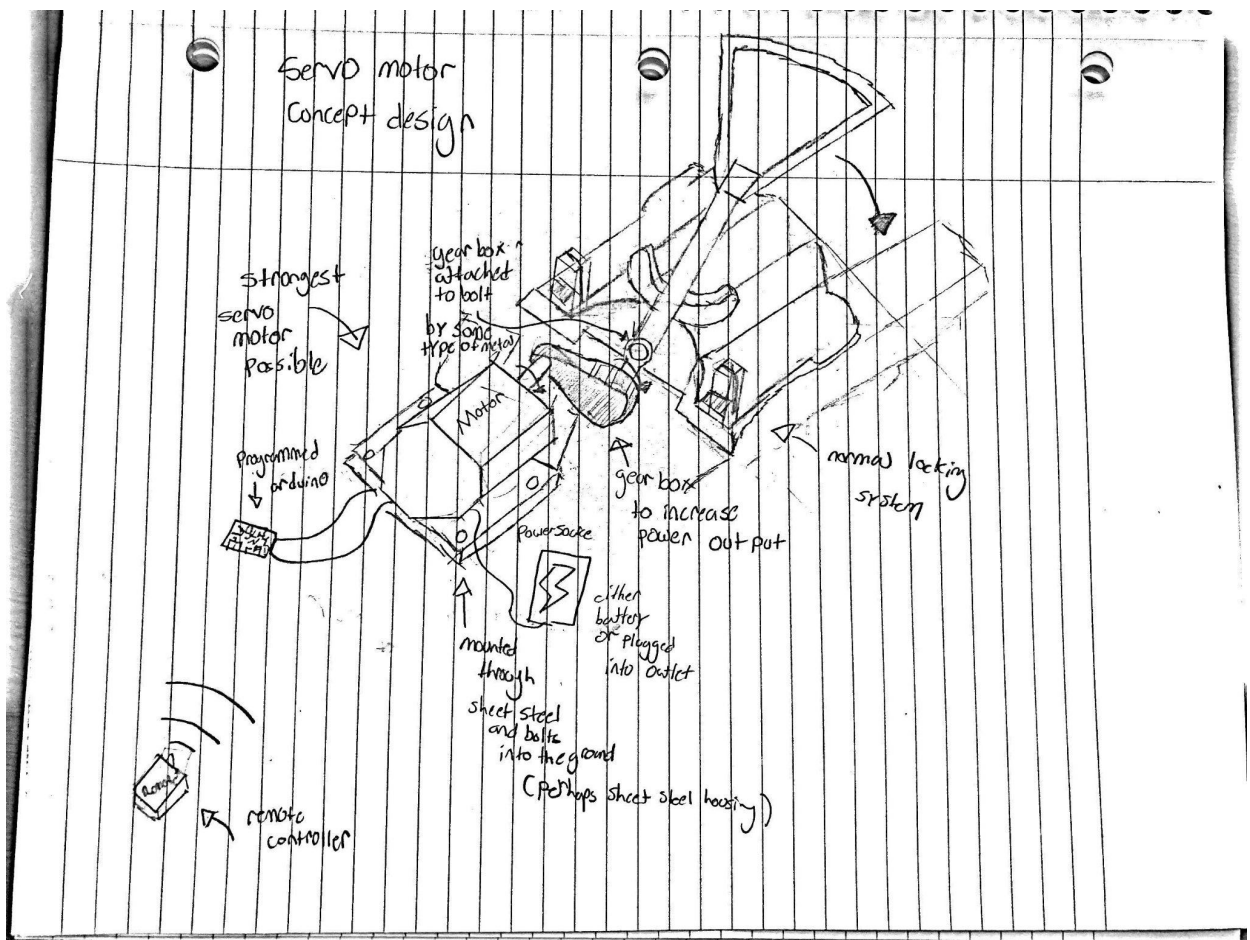 Servo motor
Concept design
strongest
servo
motor
possible
gear box
attached
to bolt
by some
type of metal
Motor
Programmed
arduino
gear box
to increase
power output
normal locking
system
Power source
either
battery
or plugged
into outlet
mounted
through
sheet steel
and bolts
into the ground
(perhaps sheet steel housing)
Remote
remote
controller